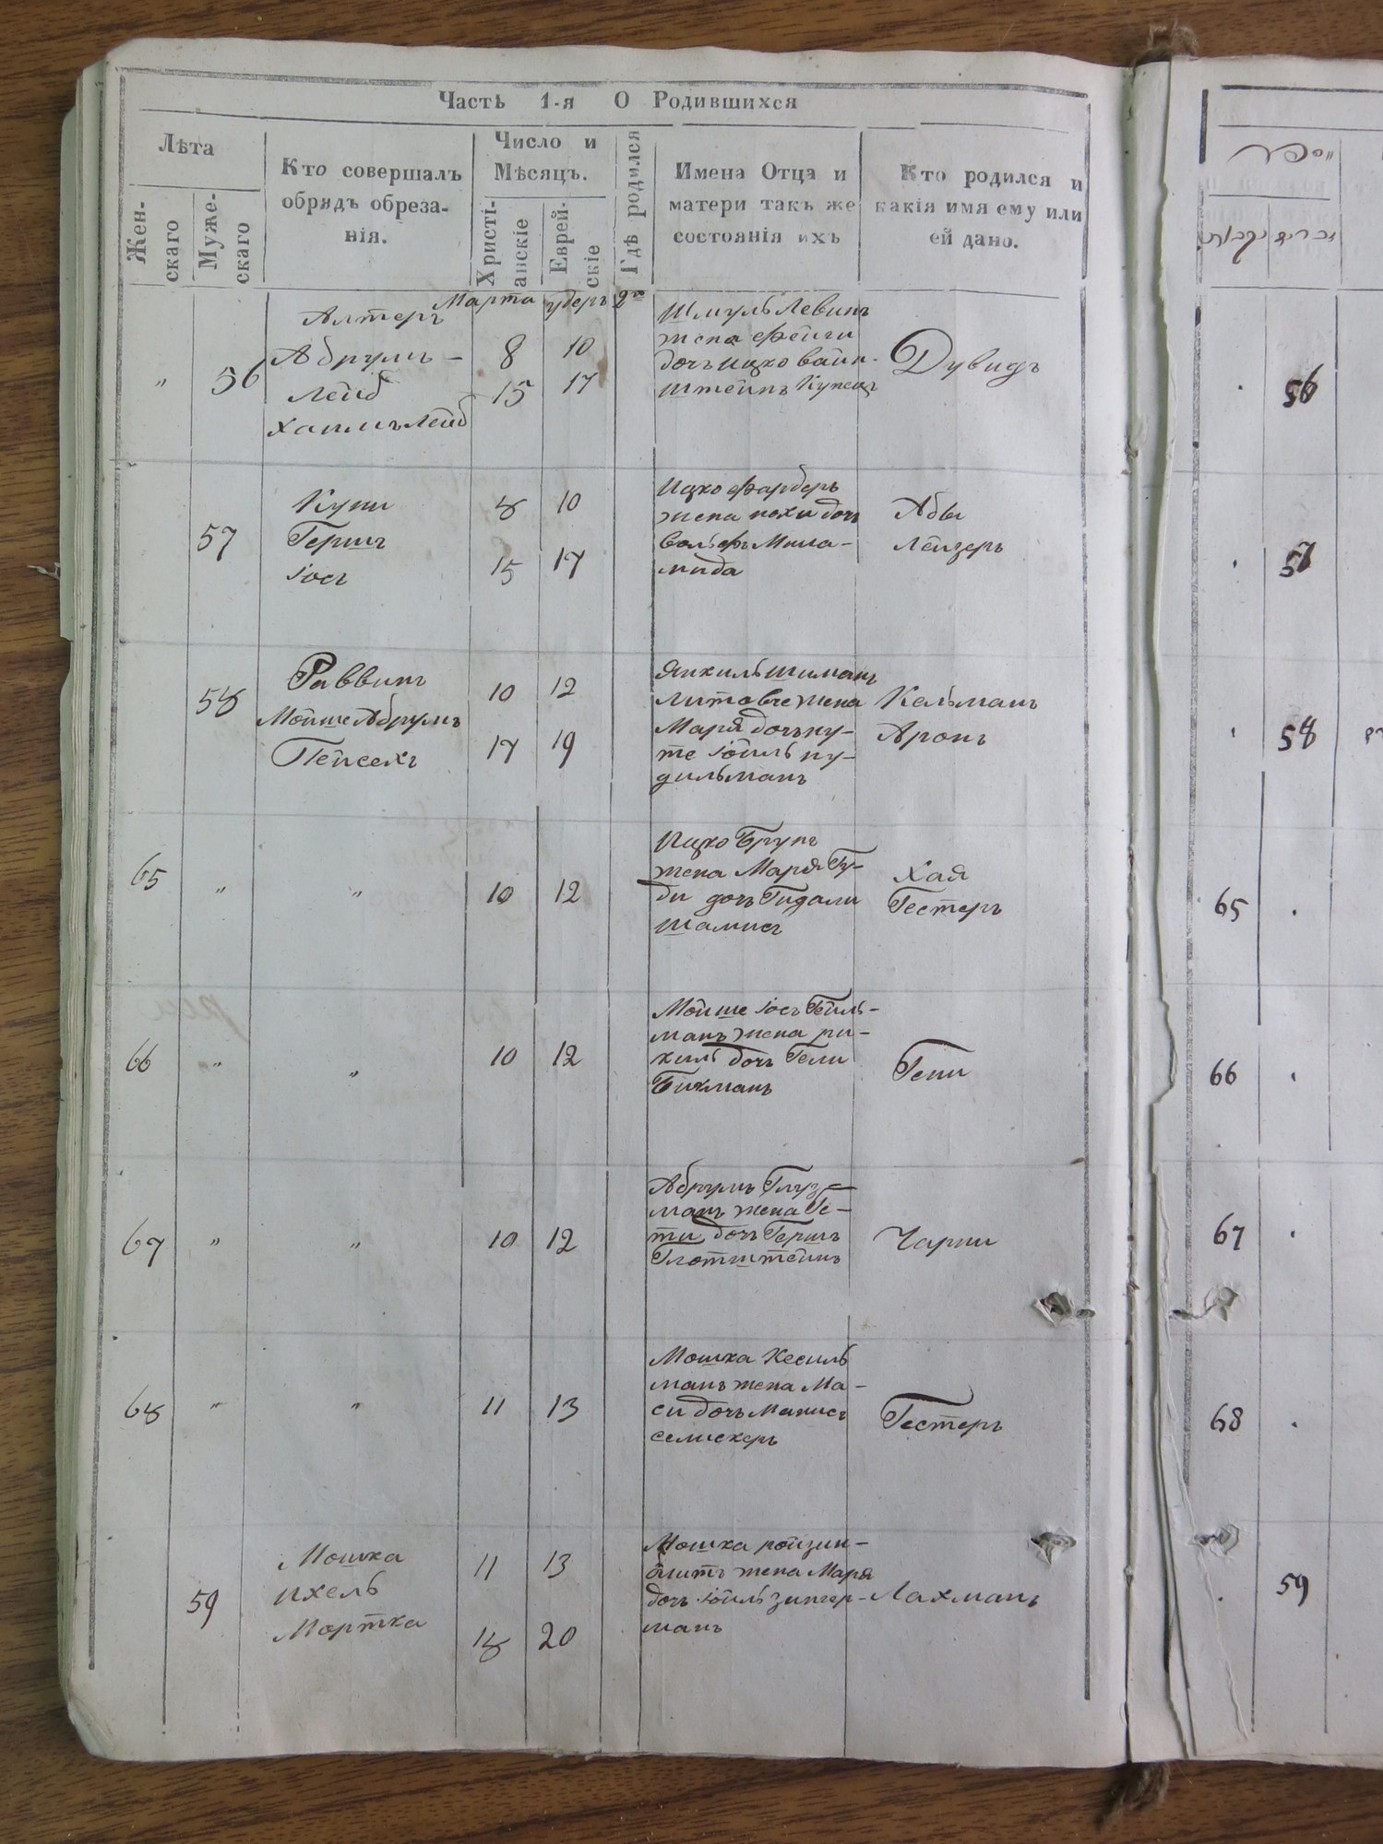 Часть 1-я О Родившихся
Лѣта
Жен-
скаго
Муже-
скаго
Кто совершалъ
обрядъ обреза-
нія.
Число и
Мѣсяцъ.
Христі-
анскіе
Еврей-
скіе
Гдѣ родился
Имена Отца и
матери такъ же
состоянія ихъ
Кто родился и
какія имя ему или
ей дано.
Марта
" 56
Алтеръ
Абрумъ-
Лейб
Хаимъ Лейб
8 10
15 17
Шмуль Левинъ
жена Фейги
дочь Ицко Вайн-
штейнъ Купецъ
Дувидъ
57
Куни
Гершъ
Іосъ
8 10
15 17
Ицко Фарберъ
жена дочь
Вольфъ
Абы
Лейзеръ
58
Раввинъ
Мойше Абрумъ
Пейсехъ
10 12
17 19
жена
Марія дочь ну-
те Іойль ну-
дильманъ
Кельманъ
Аронъ
65 " "
10 12
Ицко Брунъ
жена Марія Гу-
ди дочь Гидали
Шамисъ
Хая
Гестеръ
66 " "
10 12
Мойше Іосъ Гейль-
манъ жена ри-
хиль дочь Гели
Бихманъ
Гени
67 " "
10 12
Абрумъ Глуз-
манъ жена Ге-
ти дочь Гершъ
Глотштейнъ
Чарни
68 " "
11 13
Мошка Кесиль
манъ жена Ма-
си дочь Манисъ
Гестеръ
59
Мошка
Ихель
Мортка
11 13
18 20
Мошка ройзин-
блитъ жена Марія
дочь Іойль зингер-
манъ
Лахманъ
56
57
58
65
66
67
68
59